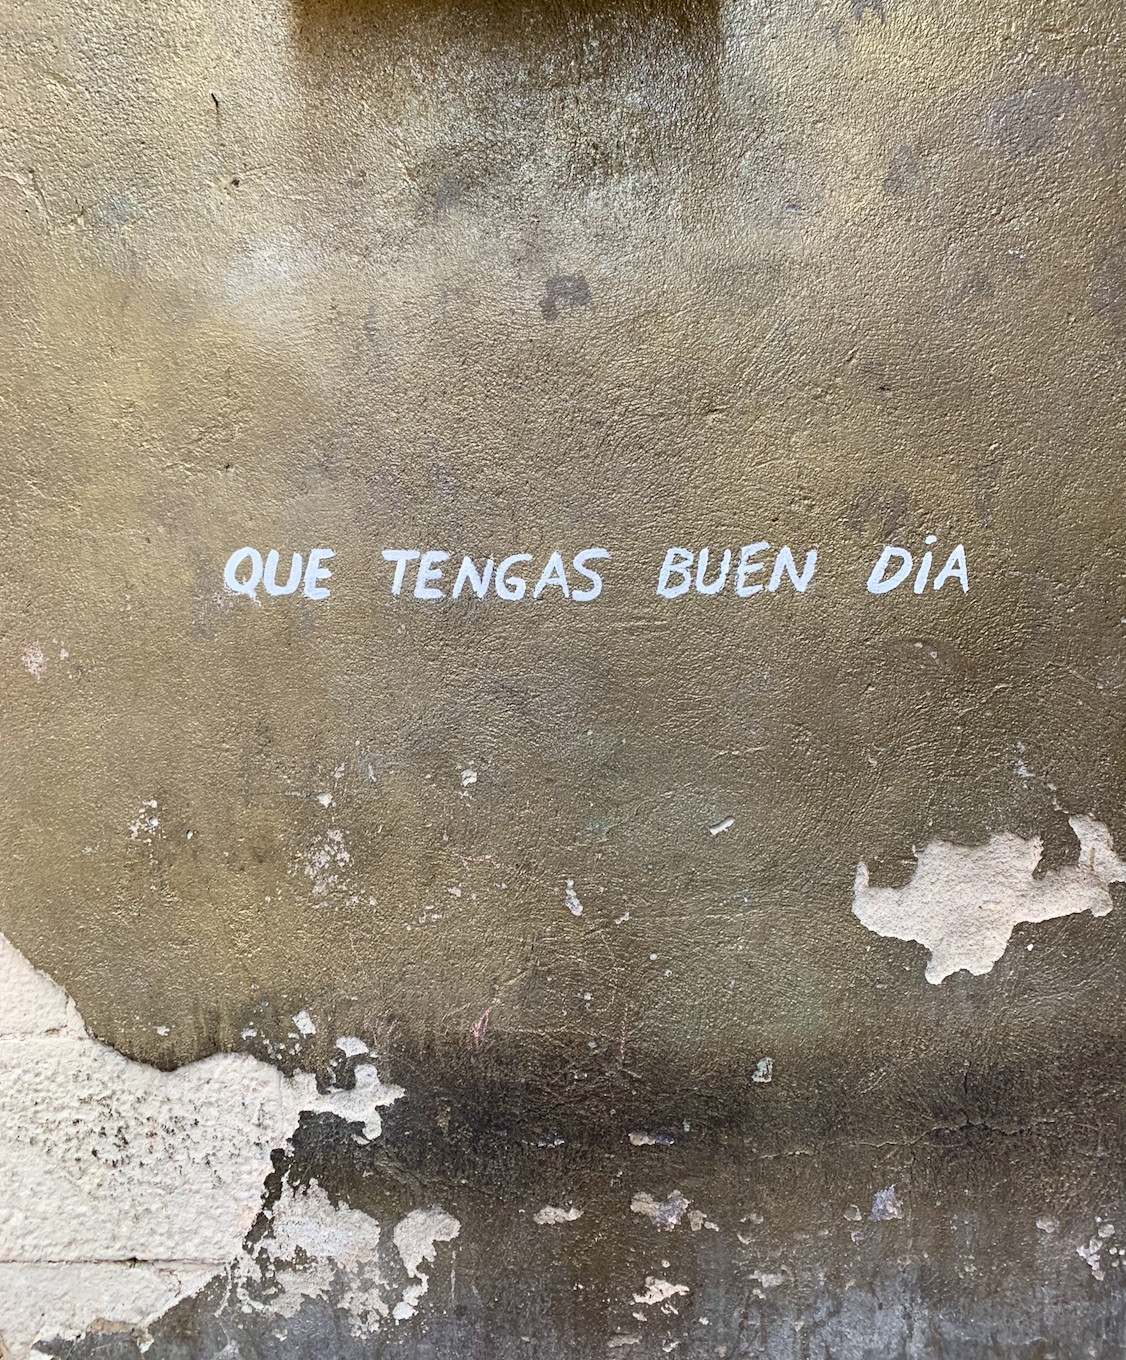 QUE TENGAS BUEN DíA